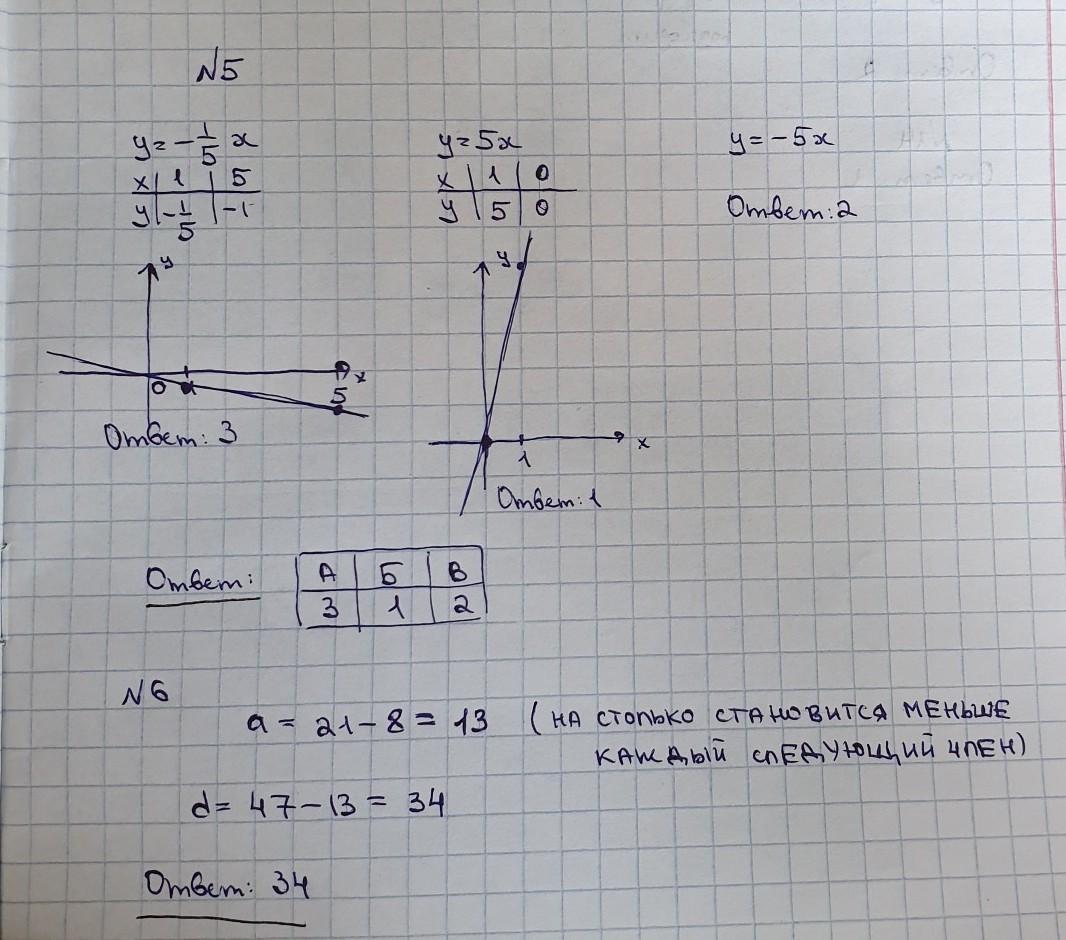 №5
y = -1/5 x
x | 1 | 5
y | -1/5 | -1
y
0
5
x
Ответ: 3
y = 5x
x | 1 | 0
y | 5 | 0
y
1
x
Ответ: 1
y = -5x
Ответ: 2
Ответ:
А | Б | В
3 | 1 | 2
№6
a = 21 - 8 = 13 (НА СТОЛЬКО СТАНОВИТСЯ МЕНЬШЕ
КАЖДЫЙ СЛЕДУЮЩИЙ ЧЛЕН)
d = 47 - 13 = 34
Ответ: 34